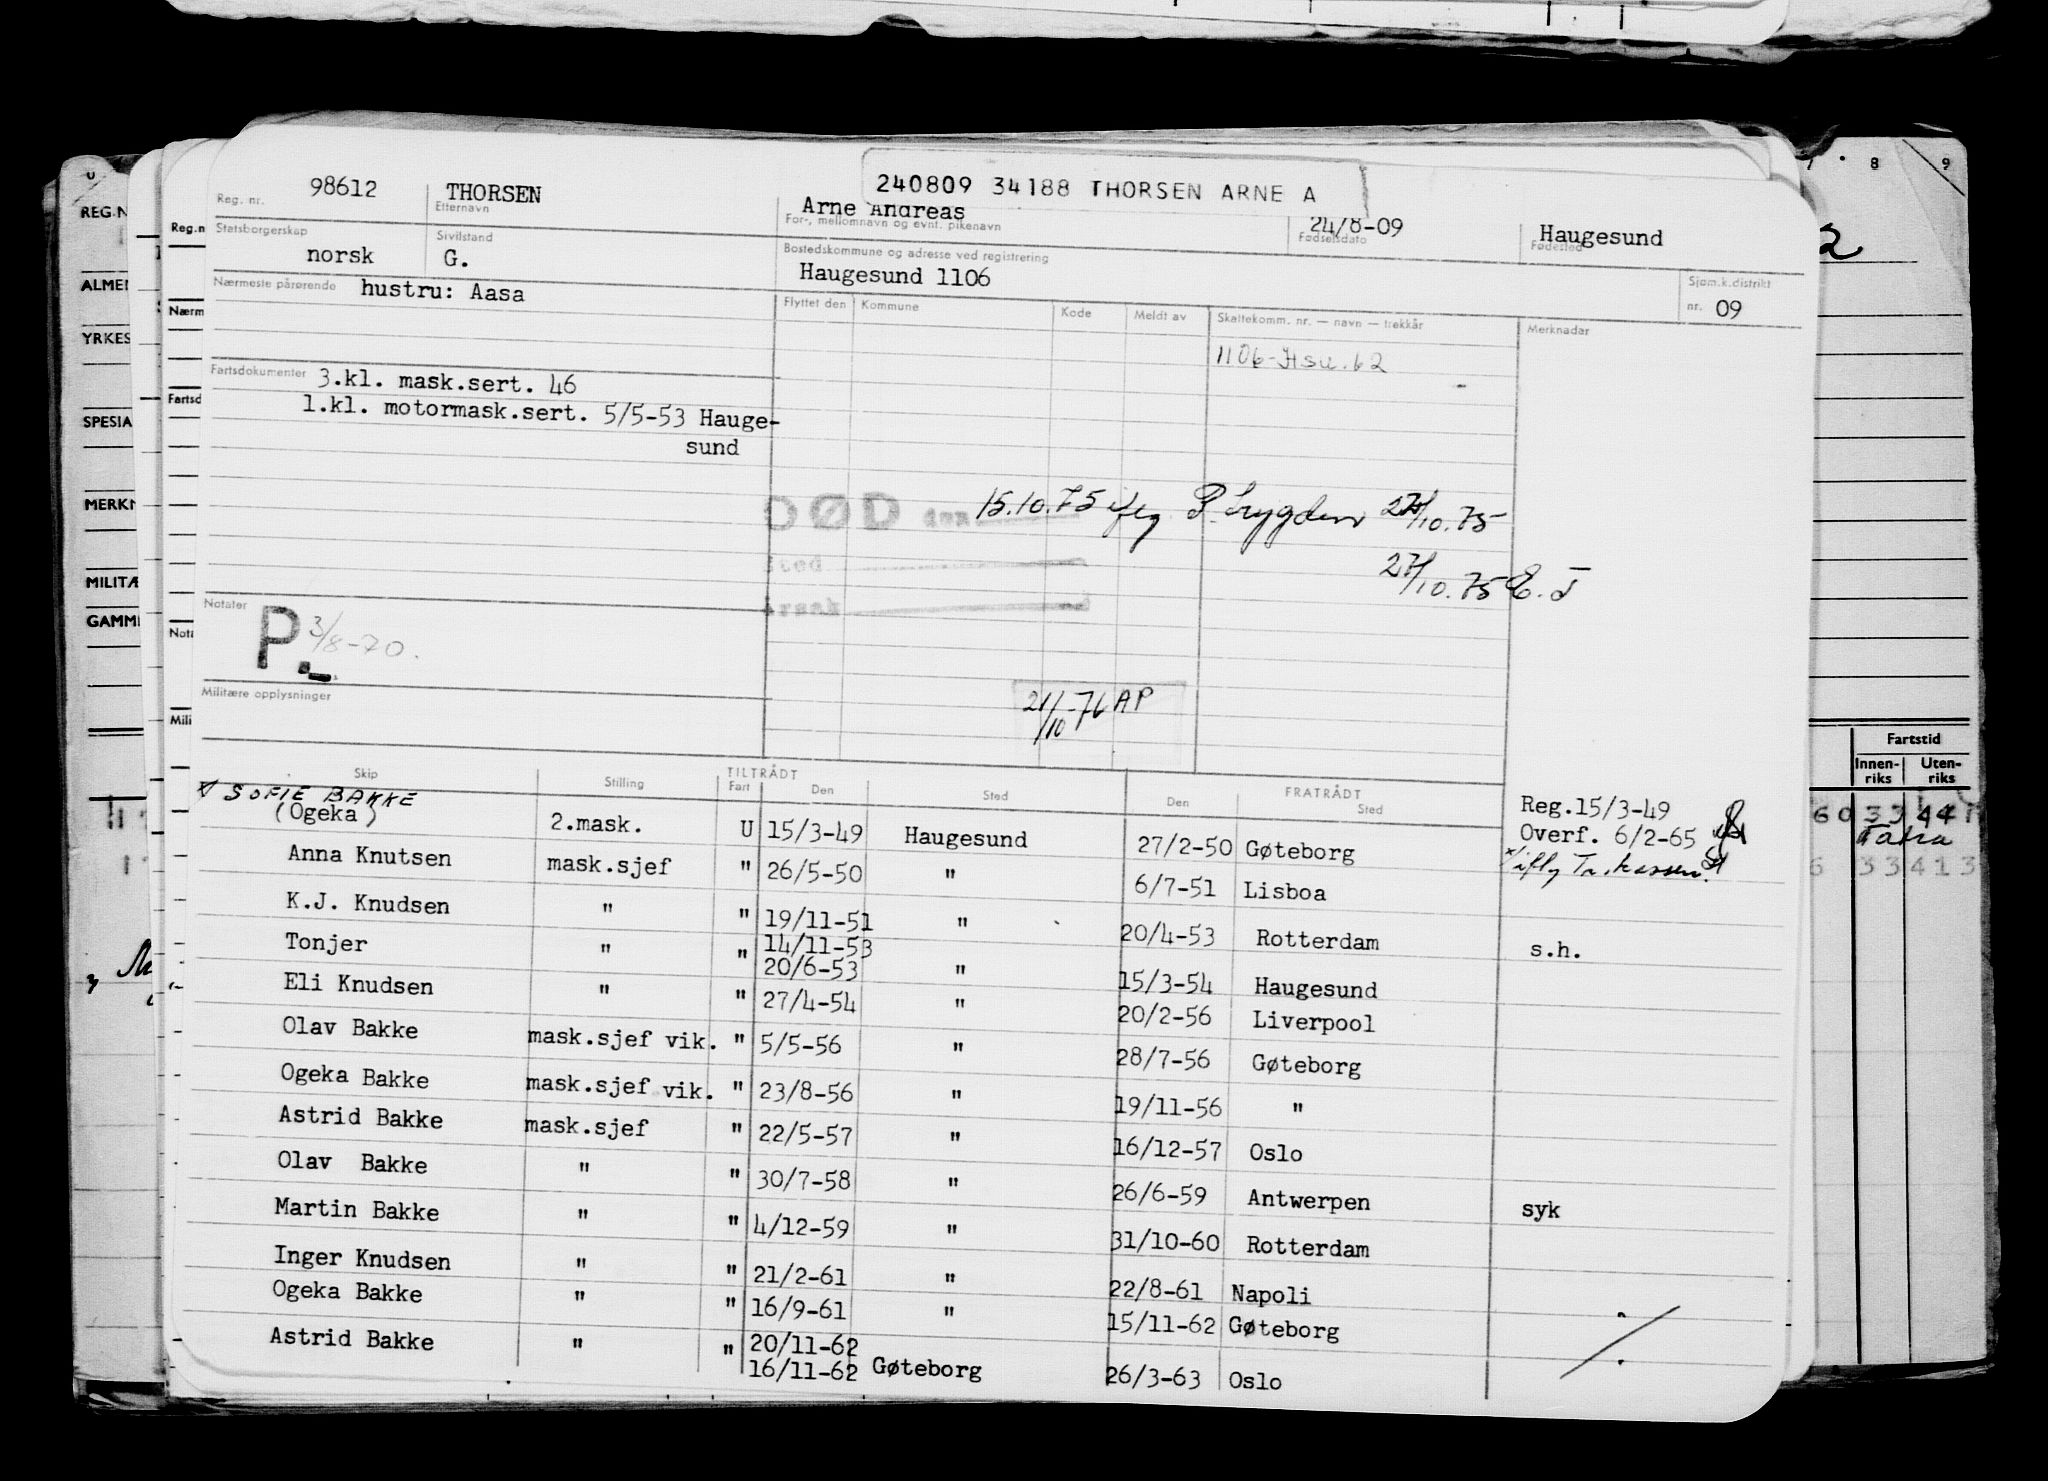 240809 34188 THORSEN ARNE A
Reg. nr. 98612
THORSEN
Etternavn
Arne Andreas
For-, mellomnavn og evnt. pikenavn
24/8-09
Fødselsdato
Haugesund
Fødested
Statsborgerskap
norsk
Sivilstand
G.
Bostedskommune og adresse ved registrering
Haugesund 1106
Sjøm.k.distrikt
nr. 09
Nærmeste pårørende hustru: Aasa
Flyttet den Kommune Kode Meldt av Skattekomm. nr. — navn — trekkår Merknader
1106-Hsu. 62
Fartsdokumenter 3.kl. mask.sert. 46
1.kl. motormask.sert. 5/5-53 Hauge-
sund
DØD den 15.10.75 P. Trygden 27/10.75
Sted 27/10.75 E. T
Årsak
Notater
P. 3/8-70.
Militære opplysninger
21/10-76 AP
Skip Stilling TILTRÅDT Fart Den Sted FRATRÅDT Den Sted
SOFIE BAKKE
(Ogeka) 2.mask. U 15/3-49 Haugesund 27/2-50 Gøteborg
Reg.15/3-49
Overf. 6/2-65
Anna Knutsen mask.sjef " 26/5-50 " 6/7-51 Lisboa
K.J. Knudsen " " 19/11-51 " 20/4-53 Rotterdam s.h.
14/11-53
Tonjer " " 20/6-53 " 15/3-54 Haugesund
Eli Knudsen " " 27/4-54 " 20/2-56 Liverpool
Olav Bakke mask.sjef vik. " 5/5-56 " 28/7-56 Gøteborg
Ogeka Bakke mask.sjef vik. " 23/8-56 " 19/11-56 "
Astrid Bakke mask.sjef " 22/5-57 " 16/12-57 Oslo
Olav Bakke " " 30/7-58 " 26/6-59 Antwerpen syk
Martin Bakke " " 4/12-59 " 31/10-60 Rotterdam
Inger Knudsen " " 21/2-61 " 22/8-61 Napoli
Ogeka Bakke " " 16/9-61 " 15/11-62 Gøteborg
20/11-62
Astrid Bakke " " 16/11-62 Gøteborg 26/3-63 Oslo
REG.N
ALMEN
YRKES
SPESIA
MERKN
MILITÆ
GAMME
Reg.n
Nærm
Fartsd
Nota
Mili
8 9
Fartstid
Innen-
riks
Uten-
riks